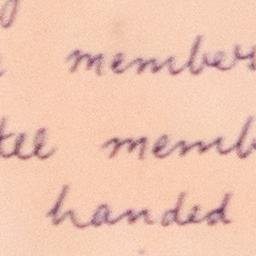 members
tee memb
handed